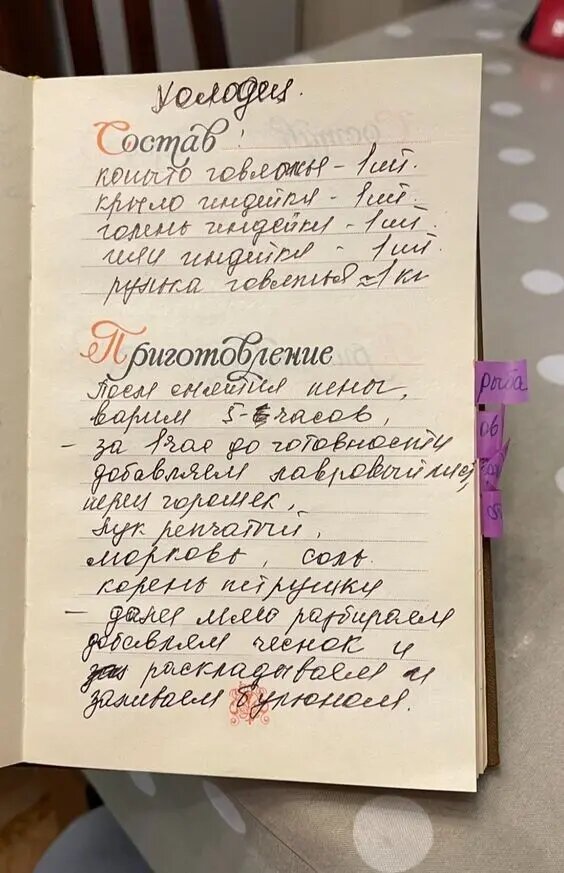 Холодец.
Состав:
копыто говяжье - 1 шт.
крыло индейки - 1 шт.
голень индейки - 1 шт.
шеи индейки - 1 шт.
рулька говяжья ≈ 1 кг
Приготовление
После снятия пены,
варим 5-6 часов,
- за 1 час до готовности
добавляем лавровый лист,
перец горошек,
лук репчатый,
морковь, соль
корень петрушки
- далее мясо разбираем
добавляем чеснок и
раскладываем и
заливаем бульоном.
рыба
ов